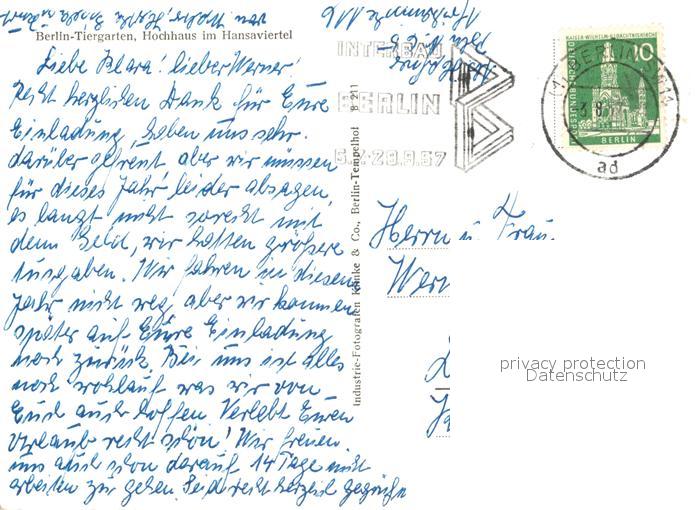 Berlin-Tiergarten, Hochhaus im Hansaviertel
Liebe Klara! lieber Werner!
Recht herzlichen Dank für Eure
Einladung, haben uns sehr
darüber gefreut aber wir müssen
für dieses Jahr leider absagen,
es langt nicht soweit mit
dem Geld, wir hatten größere
Ausgaben. Wir fahren in diesem
Jahr nicht weg, aber wir kommen
später auf Eure Einladung
noch zurück. Bei uns ist alles
noch wohlauf was wir von
Euch auch hoffen. Verlebt Euren
Urlaub recht schön! Wir freuen
uns auch schon darauf 14 Tage nicht
arbeiten zu gehen. Seid recht herzlich gegrüßt
von
Industrie-Fotografen Klinke & Co., Berlin-Tempelhof 8 211
INTERBAU
BERLIN
6.7.-29.9.57
DEUTSCHE BUNDESPOST
KAISER-WILHELM-GEDÄCHTNISKIRCHE
10
BERLIN
(1) BERLIN SW 11
ad
Herrn u. Frau
Wern
privacy protection
Datenschutz